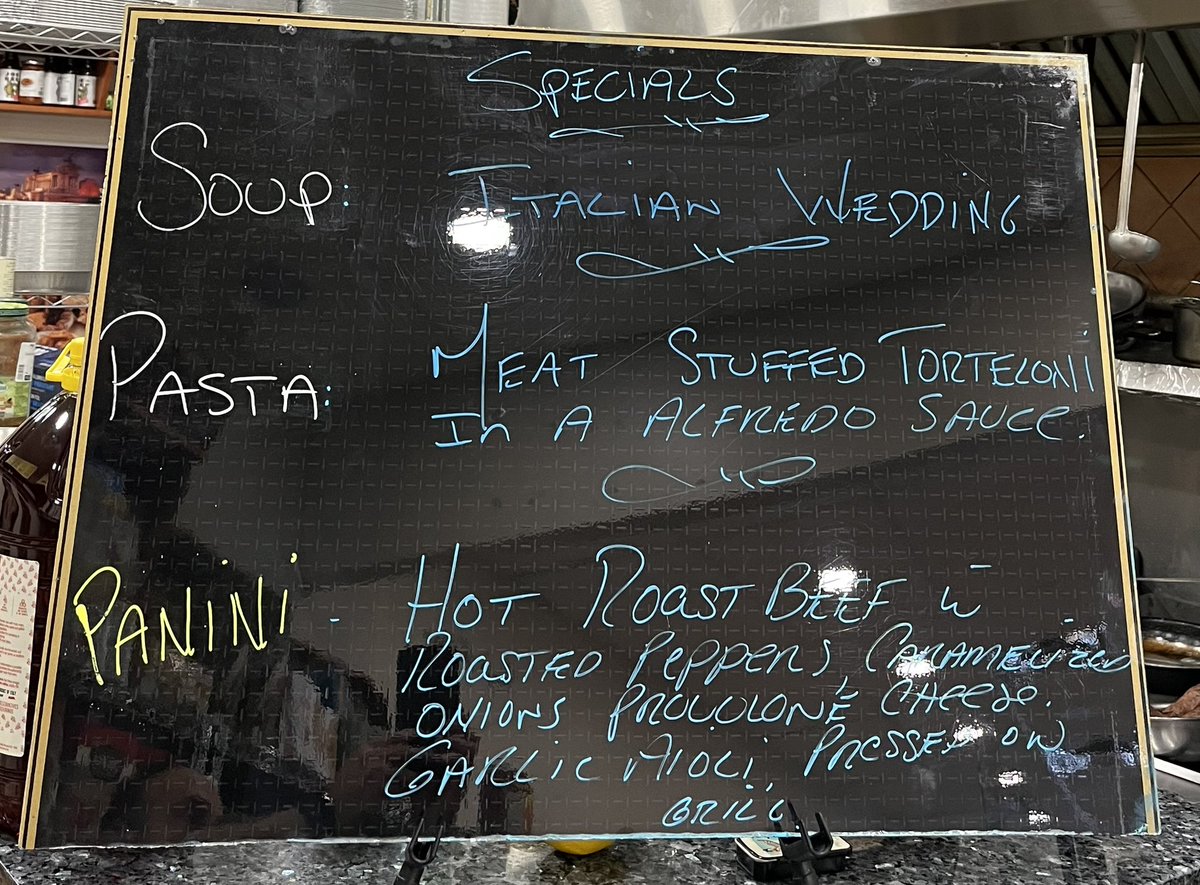 SPECIALS
SOUP: ITALIAN WEDDING
PASTA: MEAT STUFFED TORTELONI
In A ALFREDO SAUCE.
PANINI - HOT ROAST BEEF w
ROASTED PEPPERS, CARAMELIZED
ONIONS PROVOLONE CHEESE.
GARLIC AIOLI, PRESSED ON
GRILL